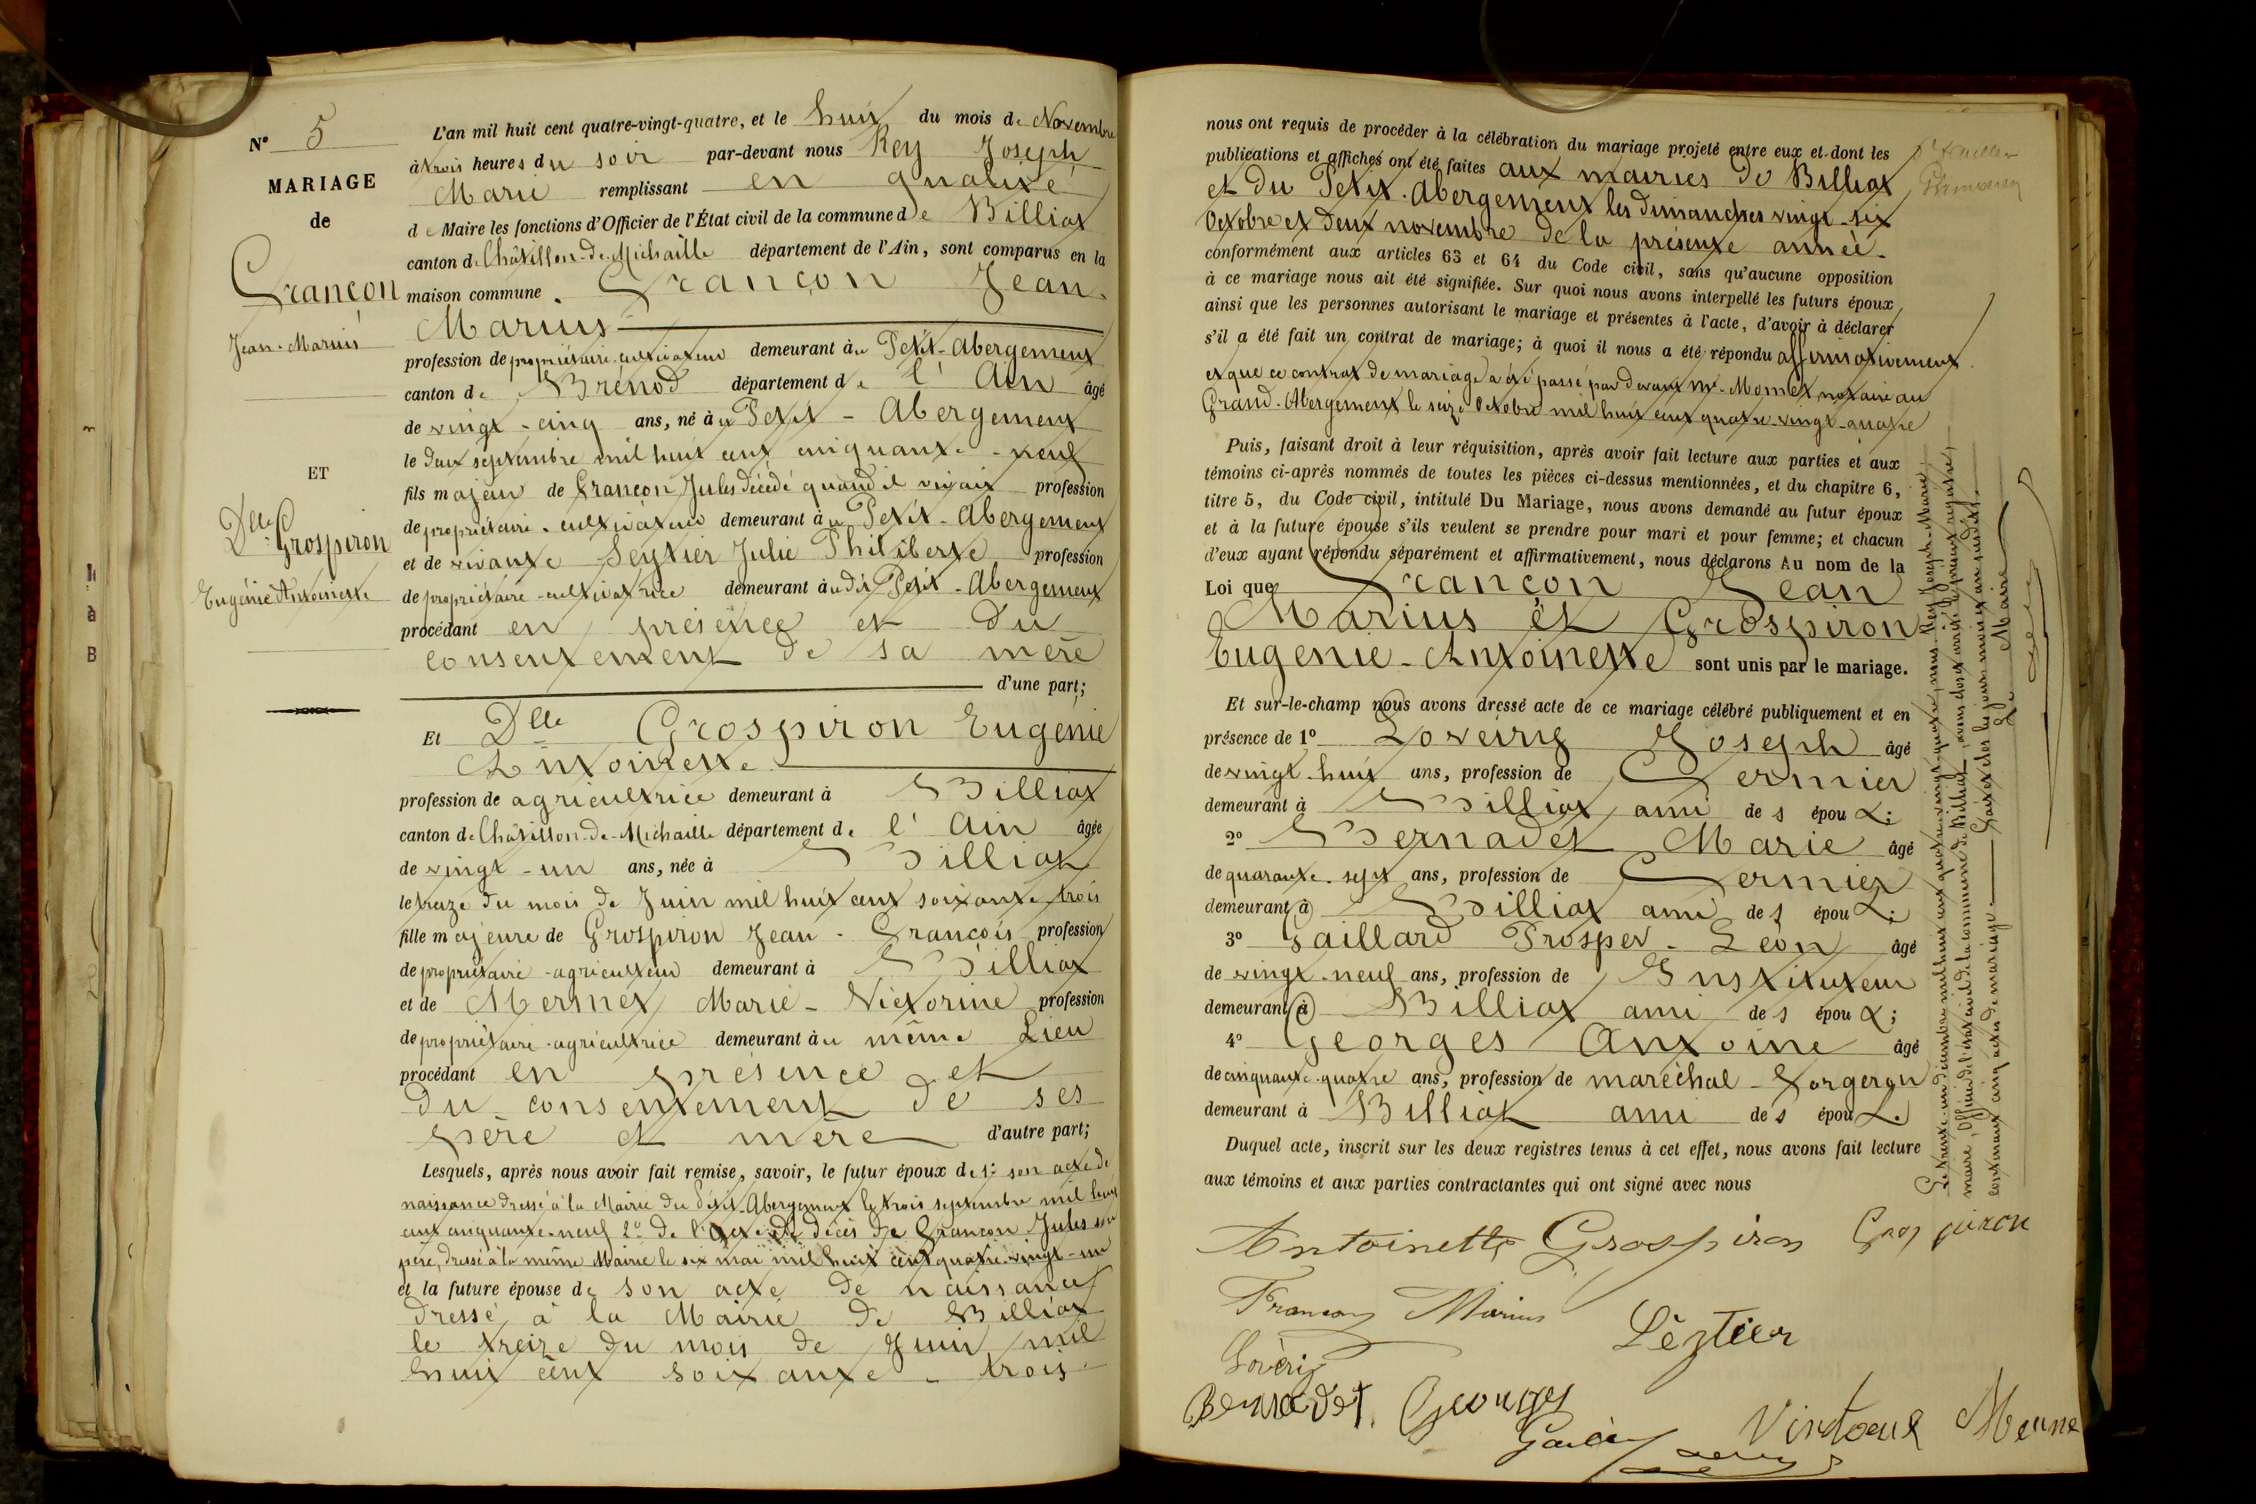 N° 5
MARIAGE
de
Françon
Jean-Marius
ET
Dlle Grospiron
Eugénie Antoinette
L'an mil huit cent quatre-vingt-quatre, et le huit du mois de Novembre
à trois heures du soir par-devant nous Rey Joseph
Marie remplissant en qualité
de Maire les fonctions d'Officier de l'État civil de la commune de Billiat
canton de Châtillon-de-Michaille département de l'Ain, sont comparus en la
maison commune. Françon Jean-
Marius
profession de propriétaire-cultivateur demeurant au Petit-Abergement
canton de Brénod département de l'Ain âgé
de vingt-cinq ans, né au Petit-Abergement
le deux septembre mil huit cent cinquante-neuf
fils majeur de Françon Jules décédé quand il vivait profession
de propriétaire-cultivateur demeurant au Petit-Abergement
et de vivante Seytier Julie Philiberte profession
de propriétaire-cultivatrice demeurant audit Petit-Abergement
procédant en présence et du
consentement de sa mère
d'une part;
Et Dlle Grospiron Eugénie
Antoinette
profession de agricultrice demeurant à Billiat
canton de Châtillon-de-Michaille département de l'Ain âgée
de vingt-un ans, née à Billiat
le treize du mois de Juin mil huit cent soixante-trois
fille majeure de Grospiron Jean-François profession
de propriétaire-agriculteur demeurant à Billiat
et de Mermet Marie-Victorine profession
de propriétaire-agricultrice demeurant au même Lieu
procédant en présence et
du consentement de ses
père et mère d'autre part;
Lesquels, après nous avoir fait remise, savoir, le futur époux de 1° son acte de
naissance dressé à la Mairie du Petit-Abergement le trois septembre mil huit
cent cinquante-neuf 2° de l'acte de décès de Françon Jules son
père, dressé à la même Mairie le six mai mil huit cent quatre-vingt-un
et la future épouse de son acte de naissance
dressé à la Mairie de Billiat
le treize du mois de Juin mil
huit cent soixante-trois
nous ont requis de procéder à la célébration du mariage projeté entre eux et dont les
publications et affiches ont été faites aux mairies de Billiat
et du Petit-Abergement les dimanches vingt-six
Octobre et deux novembre de la présente année.
conformément aux articles 63 et 64 du Code civil, sans qu'aucune opposition
à ce mariage nous ait été signifiée. Sur quoi nous avons interpellé les futurs époux
ainsi que les personnes autorisant le mariage et présentes à l'acte, d'avoir à déclarer
s'il a été fait un contrat de mariage; à quoi il nous a été répondu affirmativement
et que ce contrat de mariage a été passé par devant Me Momet, notaire au
Grand-Abergement le seize Octobre mil huit cent quatre-vingt-quatre
Puis, faisant droit à leur réquisition, après avoir fait lecture aux parties et aux
témoins ci-après nommés de toutes les pièces ci-dessus mentionnées, et du chapitre 6,
titre 5, du Code civil, intitulé Du Mariage, nous avons demandé au futur époux
et à la future épouse s'ils veulent se prendre pour mari et pour femme; et chacun
d'eux ayant répondu séparément et affirmativement, nous déclarons Au nom de la
Loi que Françon Jean
Marius et Grospiron
Eugénie-Antoinette sont unis par le mariage.
Et sur-le-champ nous avons dressé acte de ce mariage célébré publiquement et en
présence de 1° Lovérig Joseph âgé
de vingt-huit ans, profession de Fermier
demeurant à Billiat ami des époux;
2° Bernadet Marie âgé
de quarante-sept ans, profession de Fermier
demeurant à Billiat ami des époux;
3° Gaillard Prosper-Léon âgé
de vingt-neuf ans, profession de Instituteur
demeurant à Billiat ami des époux;
4° Georges Antoine âgé
de cinquante-quatre ans, profession de maréchal-Forgeron
demeurant à Billiat ami des époux.
Duquel acte, inscrit sur les deux registres tenus à cet effet, nous avons fait lecture
aux témoins et aux parties contractantes qui ont signé avec nous
Antoinette Grospiron Grospiron
Françon Marius Léztier
Lovérig
Bernadet. Georges
Vindoeul Meune
Le trente-un décembre mil huit cent quatre-vingt-quatre, nous Rey Joseph-Marie,
maire, Officier de l'état civil de la commune de Billiat, avons clos et arrêté le présent registre,
contenant cinq actes de mariage. Fait et clos les jour, mois et an susdits.
Le Maire